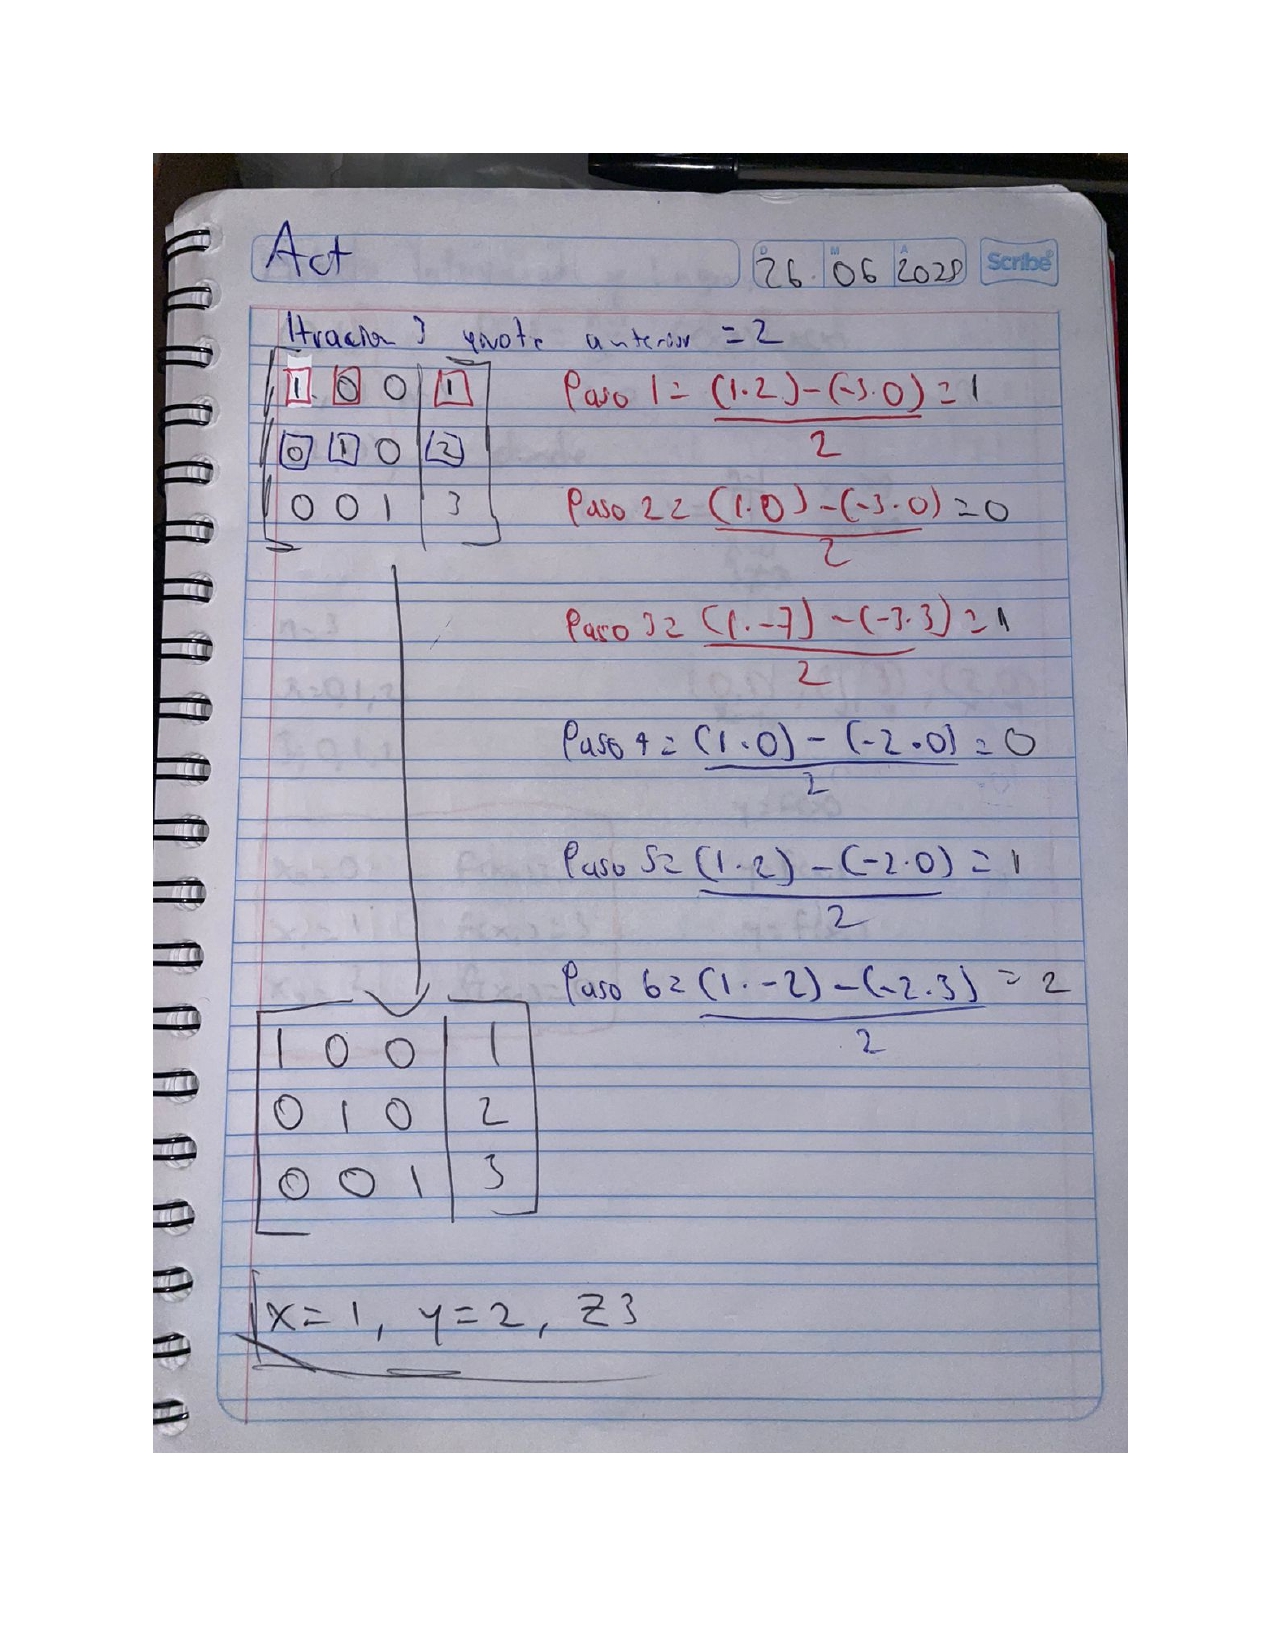 Act
D M A
26. 06 2025
Scribe
Itracion 3 anterior = 2
1 0 0 | 1
0 1 0 | 2
0 0 1 | 3
Paso 1 = (1·2)-(-3·0) = 1
2
Paso 2 = (1·0)-(-3·0) = 0
2
Paso 3 = (1·-7)-(-3·3) = 1
2
Paso 4 = (1·0)-(-2·0) = 0
2
Paso 5 = (1·2)-(-2·0) = 1
2
Paso 6 = (1·-2)-(-2·3) = 2
2
1 0 0 | 1
0 1 0 | 2
0 0 1 | 3
x=1, y=2, Z3